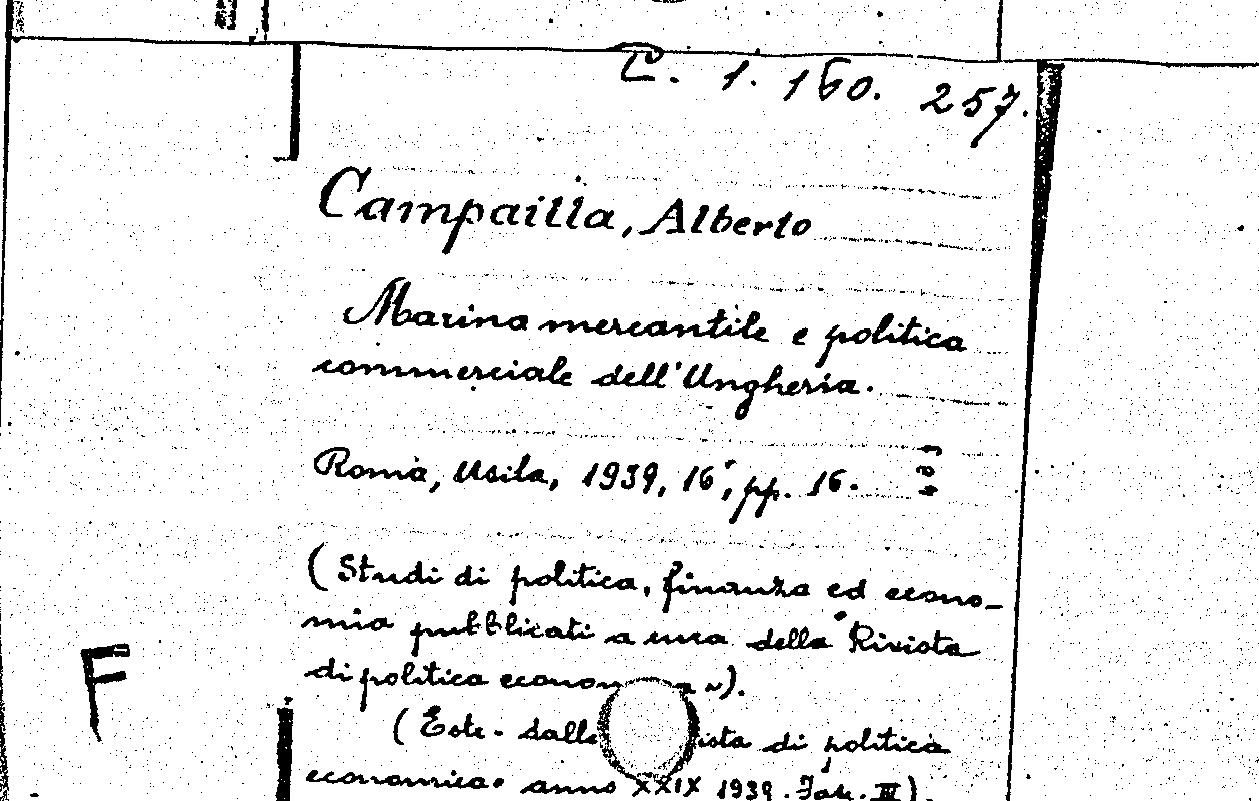 C. 1. 160. 257.
Campailla, Alberto
Marina mercantile e politica
commerciale dell'Ungheria.
Roma, Usila, 1939, 16°, pp. 16.
(Studi di politica, finanza ed econo-
mia pubblicati a cura della "Rivista
di politica econom a").
(Estr. dalla ista di politica
economica" anno XXIX 1939. Fasc. III).
F